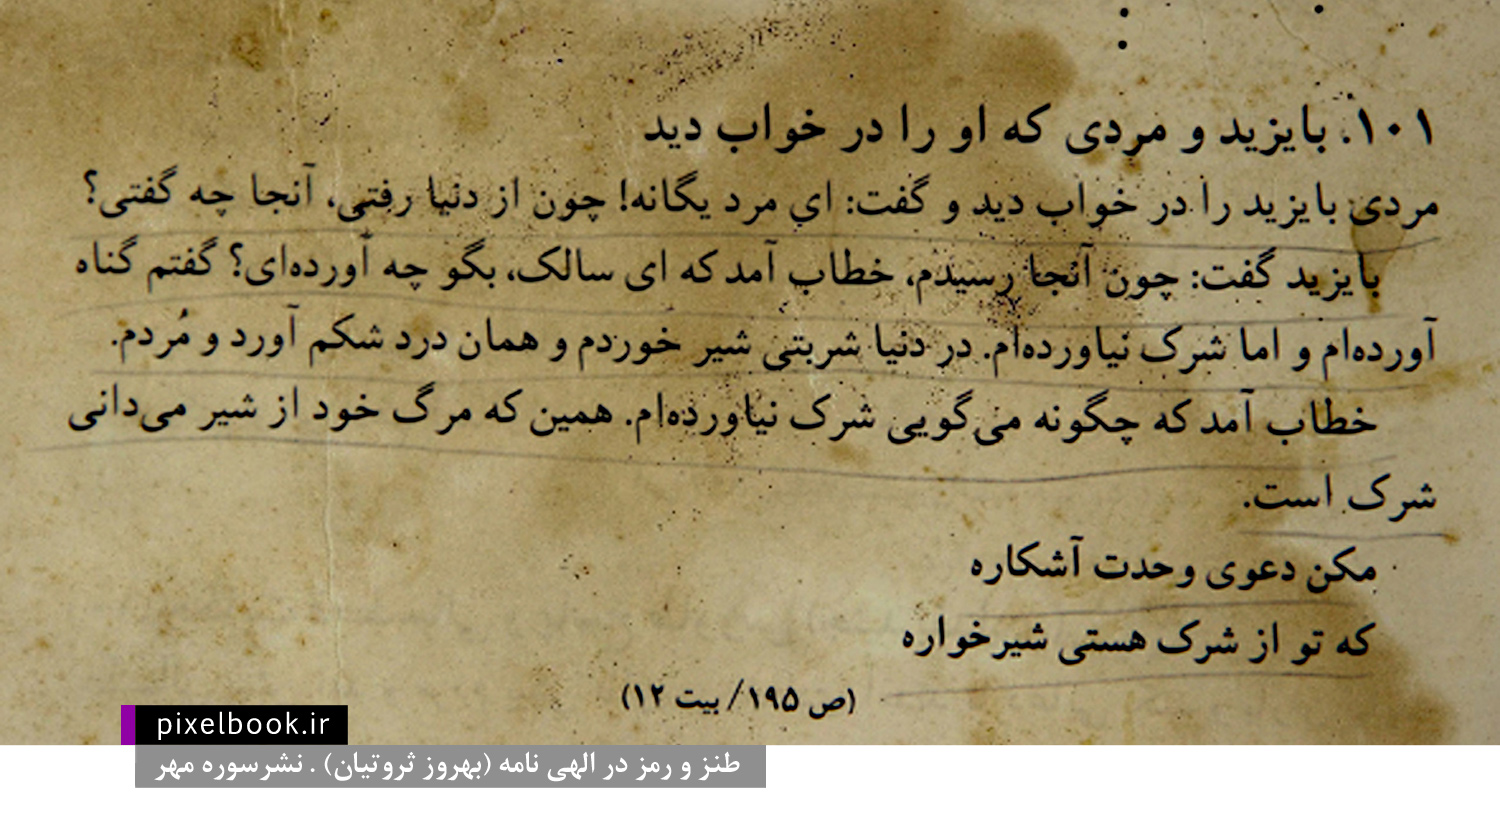 ۱۰۱. بایزید و مردی که او را در خواب دید
مردی بایزید را در خواب دید و گفت: اي مرد یگانه! چون از دنیا رفتی، آنجا چه گفتی؟
بایزید گفت: چون آنجا رسیدم، خطاب آمد که ای سالک، بگو چه آورده‌ای؟ گفتم گناه
آورده‌ام و اما شرک نیاورده‌ام. در دنیا شربتی شیر خوردم و همان درد شکم آورد و مُردم.
خطاب آمد که چگونه می‌گویی شرک نیاورده‌ام. همین که مرگ خود از شیر می‌دانی
شرک است.
مکن دعوی وحدت آشکاره
که تو از شرک هستی شیرخواره
(ص ۱۹۵/ بیت ۱۲)
pixelbook.ir
طنز و رمز در الهی نامه (بهروز ثروتیان) . نشرسوره مهر